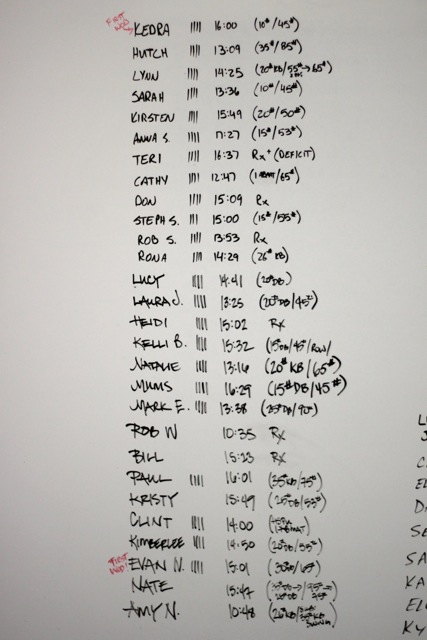 FIRST WOD KEDRA |||| 16:00 (10#/45#)
HUTCH |||| 13:09 (35#/85#)
LYNN |||| 14:25 (20#KB/55#→65#)
SARAH |||| 13:36 (10#/45#)
KIRSTEN |||| 15:49 (20#/50#)
ANNA S. |||| 17:27 (15#/53#)
TERI |||| 16:37 Rx+ (DEFICIT)
CATHY |||| 12:47 /65#)
DON |||| 15:09 Rx
STEPH S. |||| 15:00 (15#/55#)
ROB S. |||| 13:53 Rx
RONA |||| 14:29 (26#KB)
LUCY |||| 14:41 (20#DB)
LAURA J. |||| 13:25 (20#DB/45#)
HEIDI |||| 15:02 Rx
KELLI B. |||| 15:32 (15#DB/45#/ROW)
NATALIE |||| 13:16 (20#KB/65#)
MIMS |||| 16:29 (15#DB/45#)
MARK E. |||| 13:38 (25#DB/90#)
ROB W 10:35 Rx
BILL 15:23 Rx
PAUL |||| 16:01 (35#KB/75#)
KRISTY 15:49 (25#DB/53#)
CLINT |||| 14:00
KIMBERLEE |||| 14:50 (20#DB/55#)
FIRST WOD! EVAN N. |||| 15:01 (30#DB/65#)
NATE 15:42
AMY N. 10:48 (26#KB/
C
D
SA
KA
EL
KY